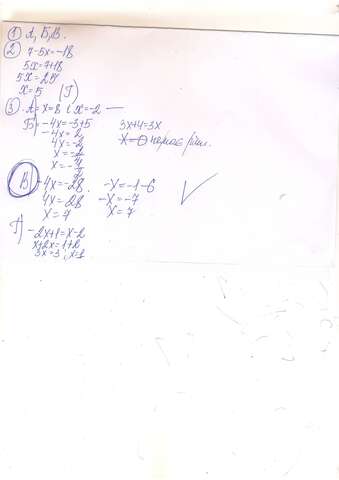 ① А, Б, В.
② 7-5x=-18
5x=7+18
5x=25
x=5 (Г)
③ А = x=8 і x=-2 —
Б = -4x=-3+5 3x+4=3x
-4x=2 -x=0 немає
4x=-2
В) -4x=-28. -x=-1-6
4x=28 -x=-7
x=7 x=7
Г) -2x+1=x-2
x+2x=1+2
3x=3; x=1